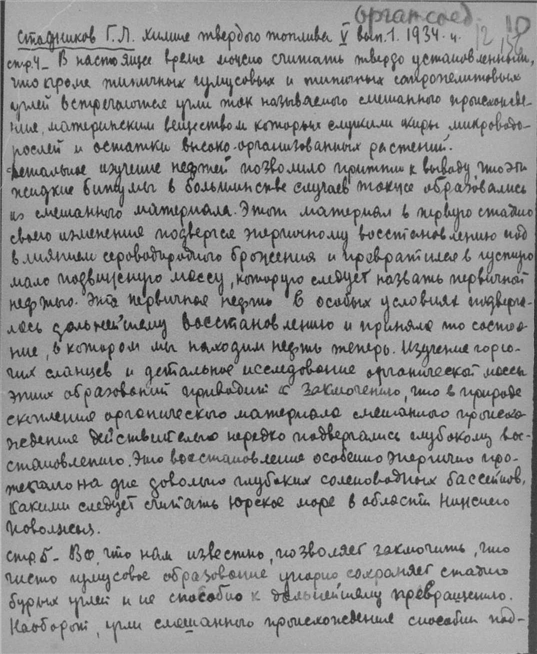 орган.соед.
12 10
Стадников Г.Л. Химия твердого топлива V вып.1. 1934. г.
стр.4_ В настоящее время можно считать твердо установленным,
что кроме типичных гумусовых и типичных сапропелитовых
углей встречаются угли так называемого смешанного происхожде-
ния, материнским веществом которых служили жиры микроводо-
рослей и остатки высоко-организованных растений.
Детальное изучение нефтей позволило притти к выводу, что эти
жидкие битумы в большинстве случаев также образовались
из смешанного материала. Этот материал в первую стадию
своего изменения подвергся энергичному восстановлению под
влиянием сероводородного брожения и превратился в густую
мало подвижную массу, которую следует назвать первичной
нефтью. Эта первичная нефть в особых условиях подверга-
лась дальнейшему восстановлению и приняла то состоя-
ние, в котором мы находим нефть теперь. Изучение горю-
чих сланцев и детальное исследование органической массы
этих образований приводит к заключению, что в природе
скопления органического материала смешанного происхо-
ждение действительно нередко подвергались глубокому вос-
становлению. Это восстановление особенно энергично про-
текало на дне довольно глубоких солоноводных бассейнов,
какими следует считать Юрское море в области Нижнего
Поволжья.
стр.5- Все, что нам известно, позволяет заключить, что
чисто гумусовое образование упорно сохраняет стадию
бурых углей и не способно к дальнейшему превращению.
Наоборот, угли смешанного происхождения способны под-